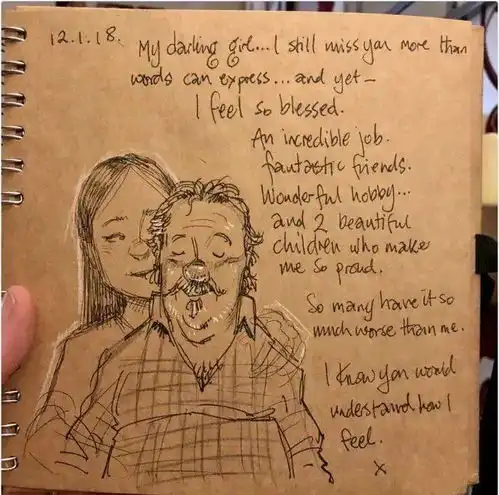 12.1.18. My darling girl... I still miss you more than
words can express... and yet -
I feel so blessed.
An incredible job.
fantastic friends.
Wonderful hobby...
and 2 beautiful
children who make
me so proud.
So many have it so
much worse than me.
I know you would
understand how I
feel.
x